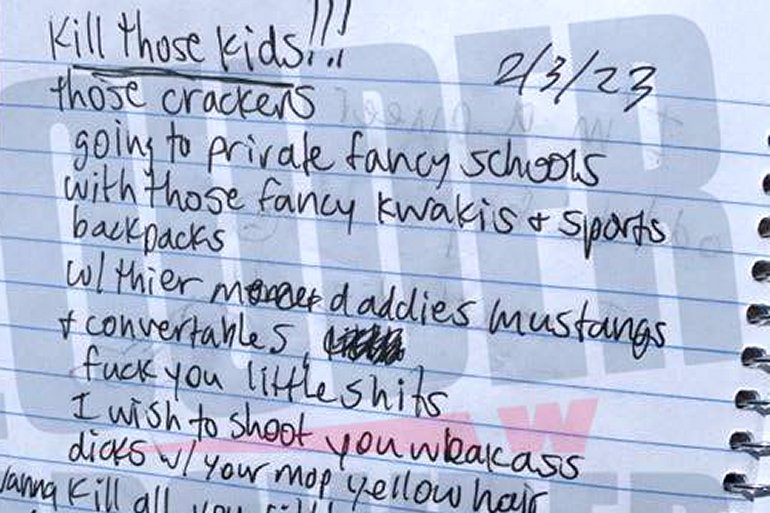 Kill those kids!!!
2/3/23
those crackers
going to private fancy schools
with those fancy kwakis + sports
backpacks
w/ thier daddies mustangs
+ convertables,
fuck you little shits
I wish to shoot you weakass
dicks w/ your mop yellow hair
wanna kill all you